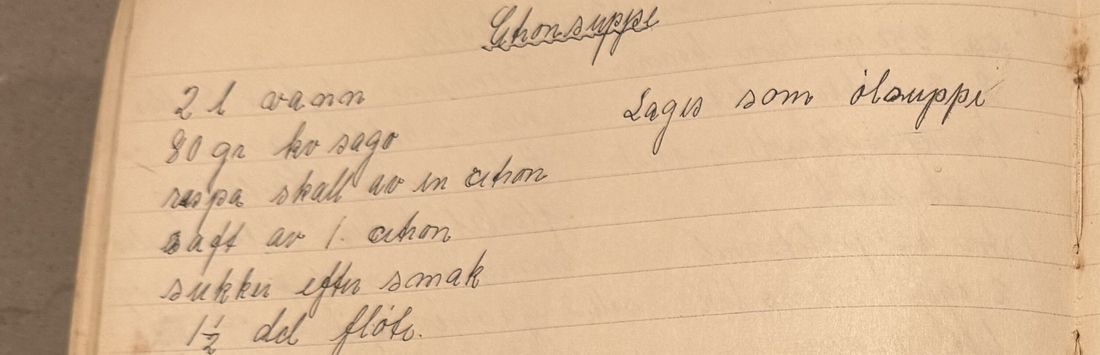 Citronsuppe
2 l vann
80 gr kv sago
raspa skall av en citron
saft av 1. citron
sukker efter smak
1 1/2 dcl fløte.
Lages som ølsuppe